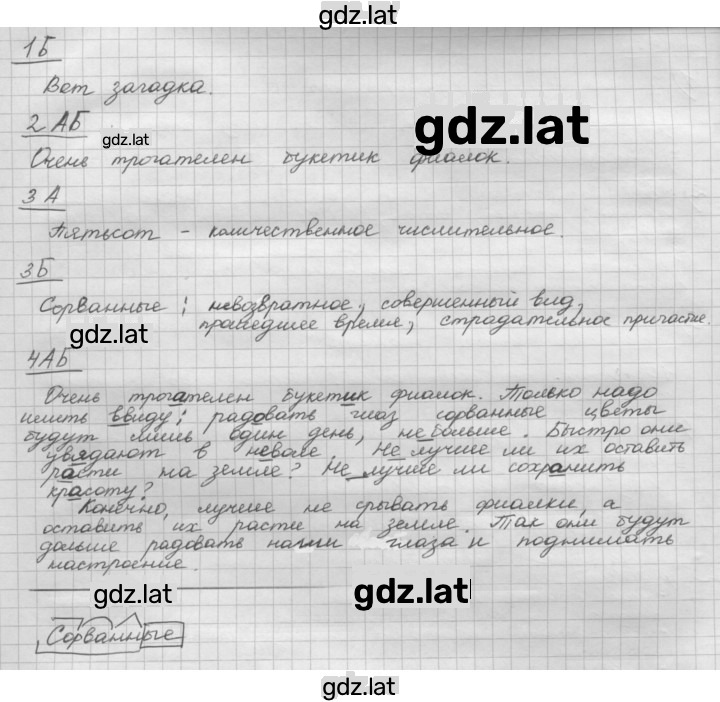 gdz.lat
1Б
Вот загадка.
gdz.lat
2 АБ
gdz.lat
Очень трогателен букетик фиалок.
3 А
Пятьсот - количественное числительное.
3Б
Сорванные : невозвратное, совершенный вид,
прошедшее время, страдательное причастие.
gdz.lat
4АБ
Очень трогателен букетик фиалок. Только надо
иметь ввиду; радовать глаз сорванные цветы
будут лишь один день, не больше. Быстро они
увядают в неволе. Не лучше ли их оставить
расти на земле? Не лучше ли сохранить
красоту?
Конечно, лучше не срывать фиалки, а
оставить их расти на земле. Так они будут
дольше радовать наши глаза и поднимать
настроение.
gdz.lat
gdz.lat
Сорванные
gdz.lat